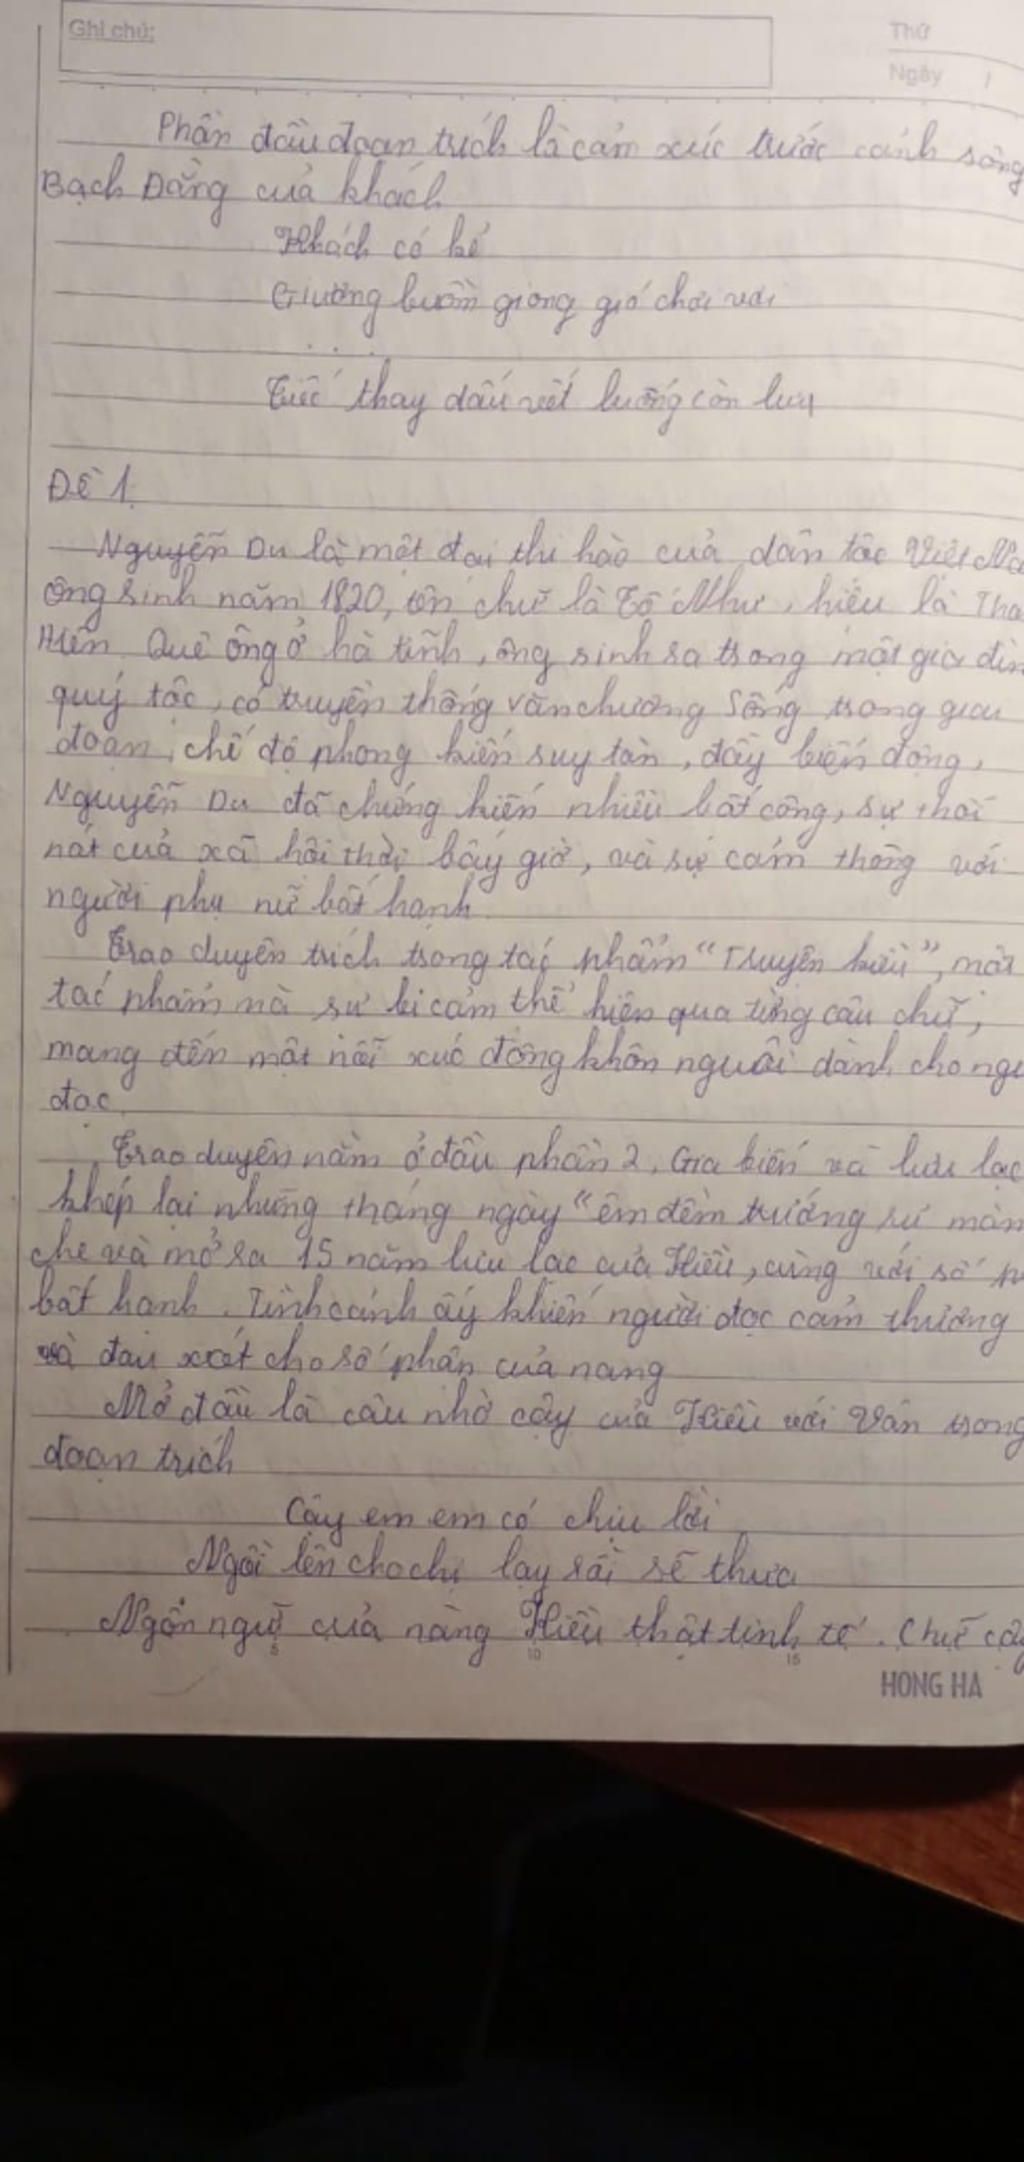 Ghi chú:
Thứ
Ngày /
Phần đầu đoạn trích là cảm xúc trước cảnh sông
Bạch Đằng của khách
Khách có kẻ
Giương buồm giong gió chơi vơi
...
Tiếc thay dấu vết luống còn lưu
Đề 1.
Nguyễn Du là một đại thi hào của dân tộc Việt Na
ông sinh năm 1820, tên chữ là Tố Như, hiệu là Tha
Hiên. Quê ông ở hà tĩnh, ông sinh ra trong một gia đìn
quý tộc, có truyền thống văn chương Sống trong giai
đoạn, chế độ phong kiến suy tàn, đầy biến động,
Nguyễn Du đã chứng kiến nhiều bất công, sự thối
nát của xã hội thời bấy giờ, và sự cảm thông với
người phụ nữ bất hạnh.
Trao duyên trích trong tác phẩm "Truyện kiều", một
tác phẩm mà sự bi cảm thể hiện qua từng câu chữ,
mang đến một nỗi xúc động khôn nguôi dành cho ngư
đọc.
Trao duyên nằm ở đầu phần 2, Gia biến và lưu lạc
khép lại những tháng ngày "êm đềm trướng rủ màn
che và mở ra 15 năm lưu lạc của Kiều, cùng với số p
bất hạnh. Tình cảnh ấy khiến người đọc cảm thương
và đau xót cho số phận của nàng
Mở đầu là câu nhờ cậy của Kiều với Vân trong
đoạn trích
Cậy em em có chịu lời
Ngồi lên cho chị lạy rồi sẽ thưa
Ngôn ngữ của nàng Kiều thật tinh tế. Chữ cậ
5 10 15
HONG HA